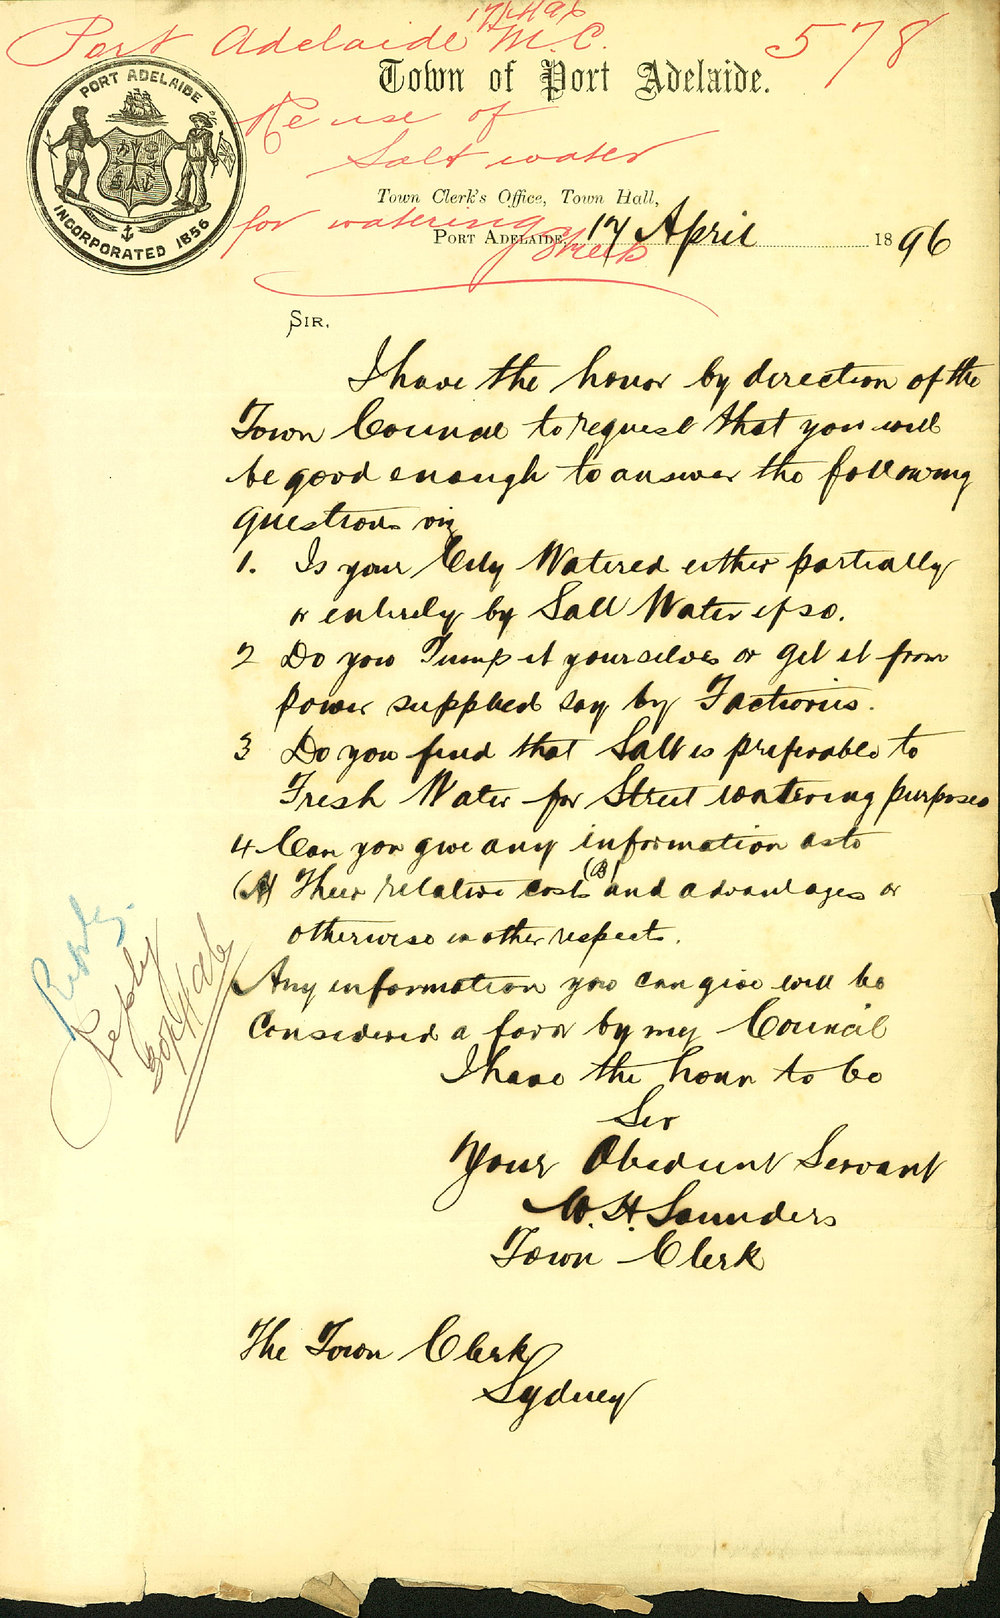 17/4/96
Port Adelaide M.C. 578
Town of Port Adelaide.
PORT ADELAIDE
INCORPORATED 1856
Re use of
Salt water
for watering
Streets
Town Clerk's Office, Town Hall,
PORT ADELAIDE, 17 April 1896
SIR,
I have the honor by direction of the
Town Council to request that you will
be good enough to answer the following
questions viz
1. Is your City Watered either partially
or entirely by Salt Water if so.
2 Do you Pump it yourselves or get it from
power supplied say by Factories.
3 Do you find that Salt is preferable to
Fresh Water for Street watering purposes
4 Can you give any information as to
(A) Their relative cost (B) and advantages or
otherwise in other respects.
Any information you can give will be
Considered a favor by my Council
I have the honor to be
Sir
Your Obedient Servant
W. H. Saunders
Town Clerk
The Town Clerk
Sydney
Reply.
Reply
30/4/96